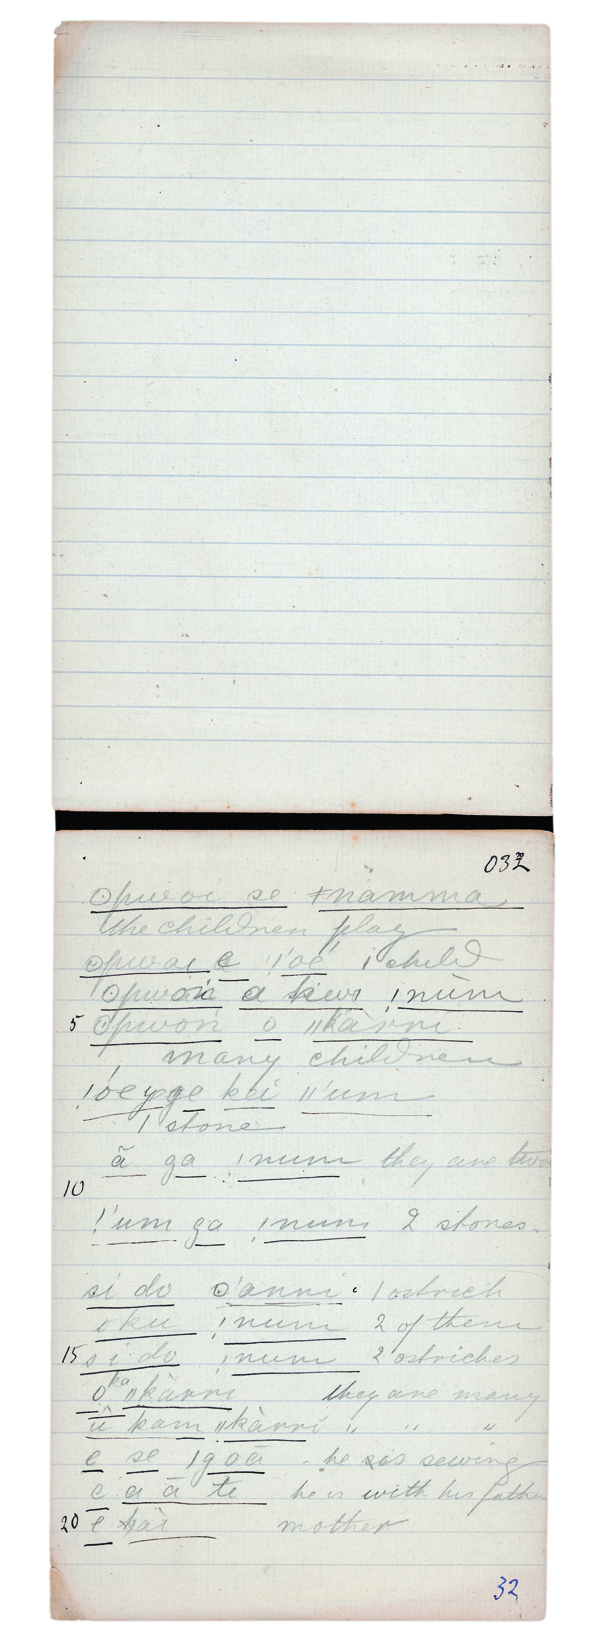 032
ʘpwoi se ǂnamma
the children play
ʘpwai e !'oé 1 child
ʘpwoń a keu !nŭm
5 ʘpwoń o ǁkàrri
many children
!óe ge kei ǁ'um
1 stone
ã ga !num they are two
10
!'um ga !num 2 stones.
si do ʘ'anni. 1 ostrich
oku !num 2 of them
15 si do !num 2 ostriches
o ka ǁkàrri they are many
ŭ kam ǁkàrri " " "
e se ǀgoā he is sewing
e a ā te he is with his father
20 e hài mother
32